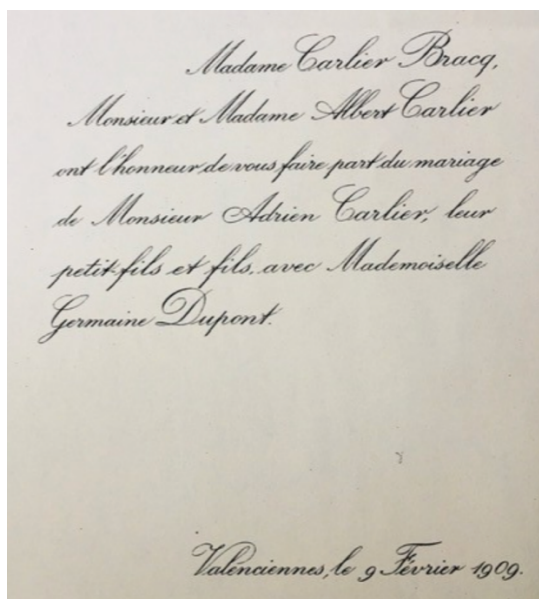 Madame Carlier Bracq,
Monsieur et Madame Albert Carlier
ont l'honneur de vous faire part du mariage
de Monsieur Adrien Carlier, leur
petit-fils et fils, avec Mademoiselle
Germaine Dupont.
Valenciennes, le 9 Février 1909.